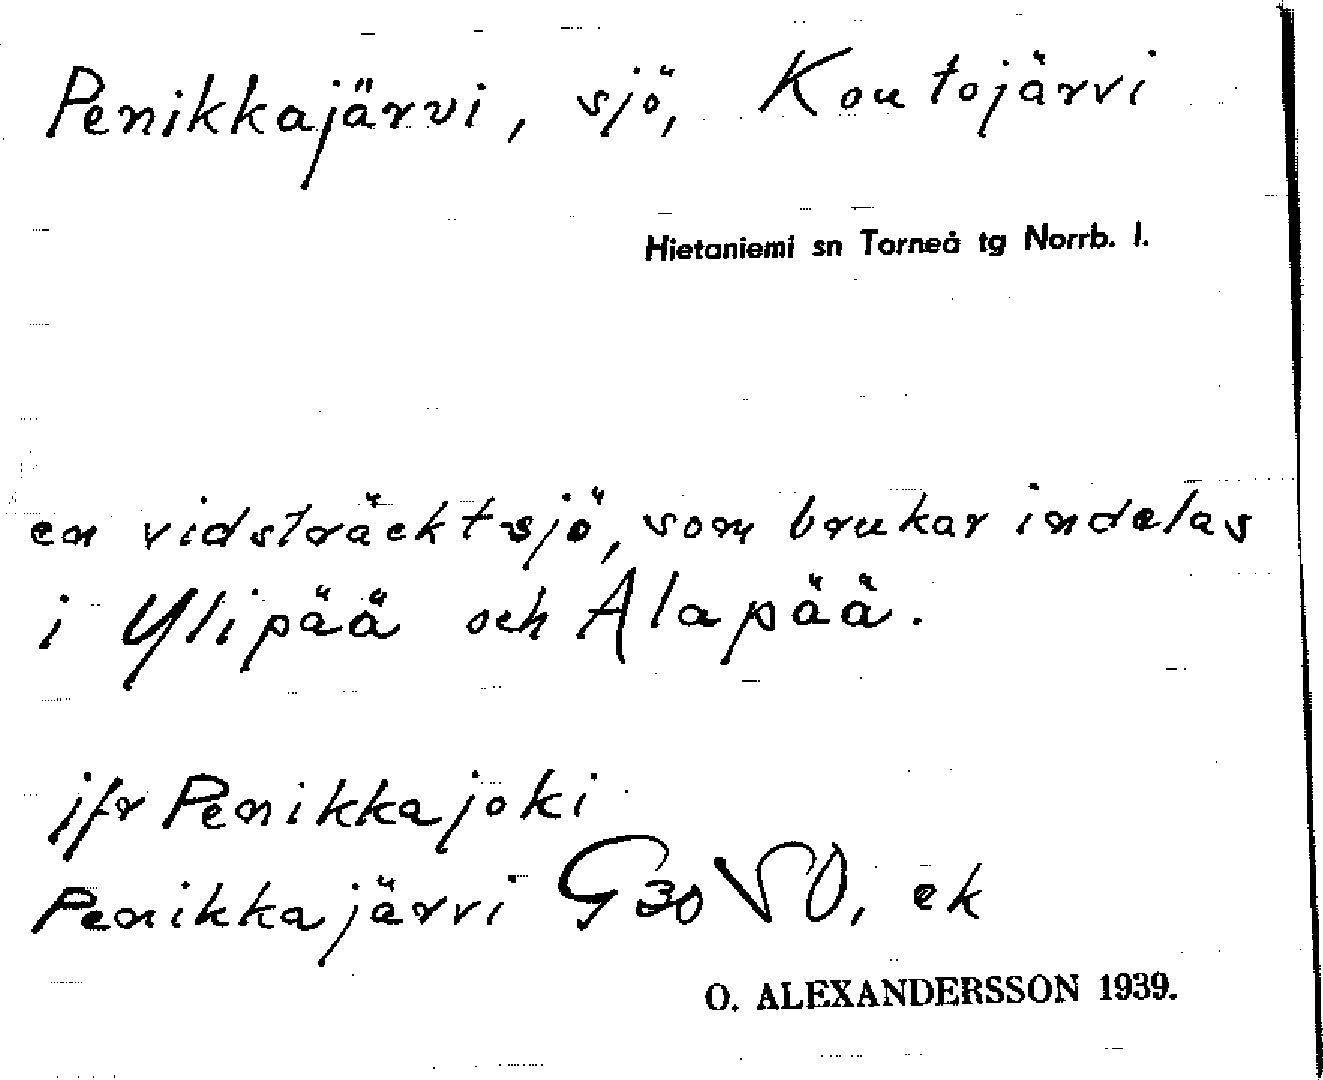 Penikkajärvi, sjö, Koutojärvi
Hietaniemi sn Torneå tg Norrb. l.
en vidsträckt sjö, som brukar indelas
i Ylipää och Alapää.
jfr Penikkajoki
Penikkajärvi G30 SO, ek
O. ALEXANDERSSON 1939.